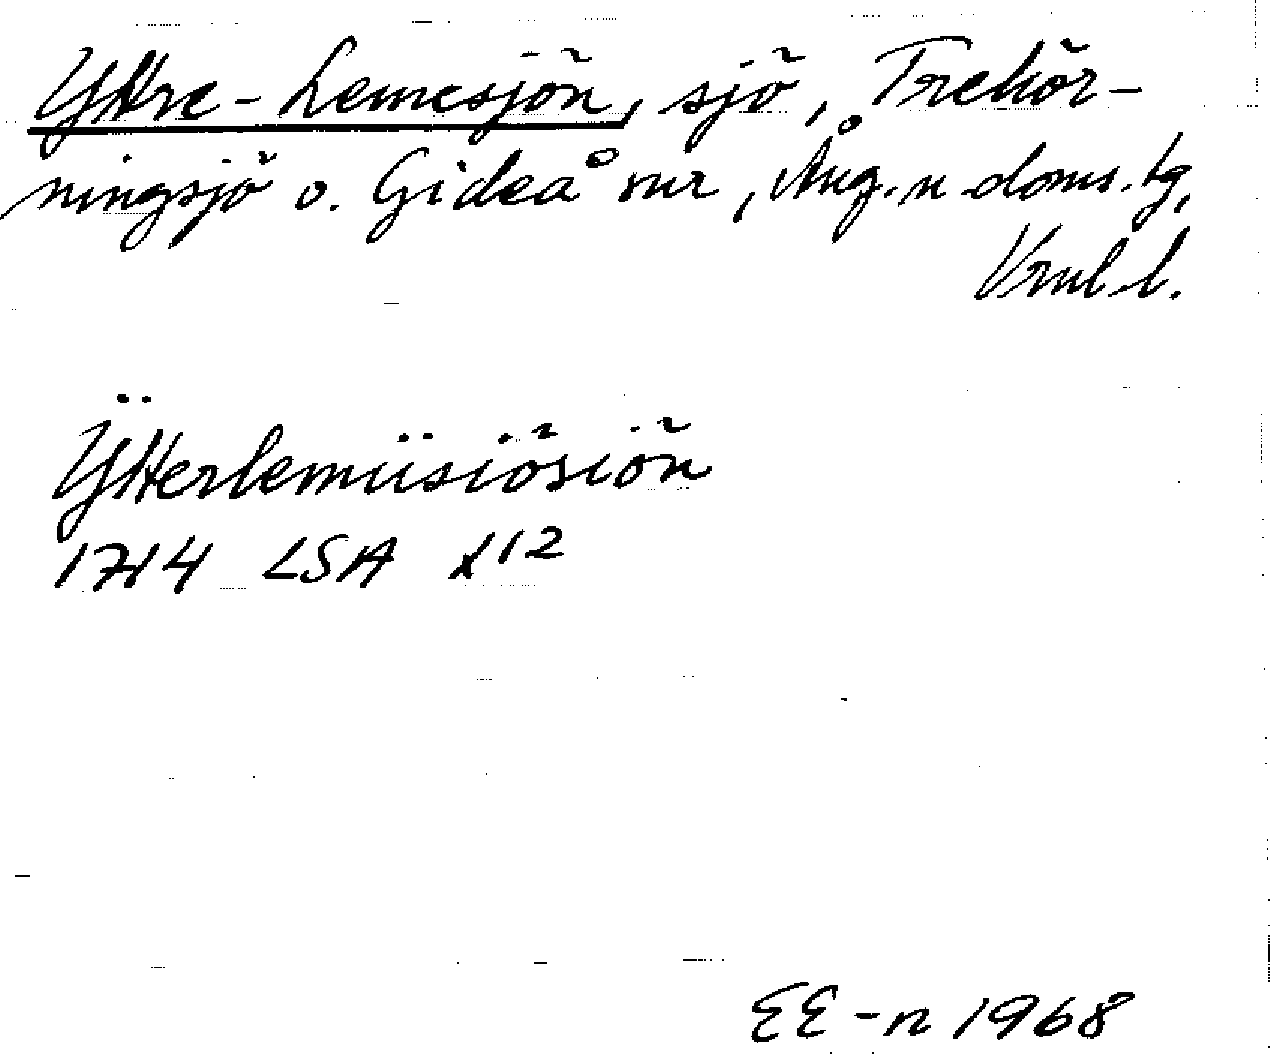 Yttre-Lemesjön, sjö, Trehör-
ningsjö o. Gideå snr, Ång. n doms. tg,
Vrnl l.
Ÿtterlemiisiösiön
1714 LSA X12
EE-n 1968